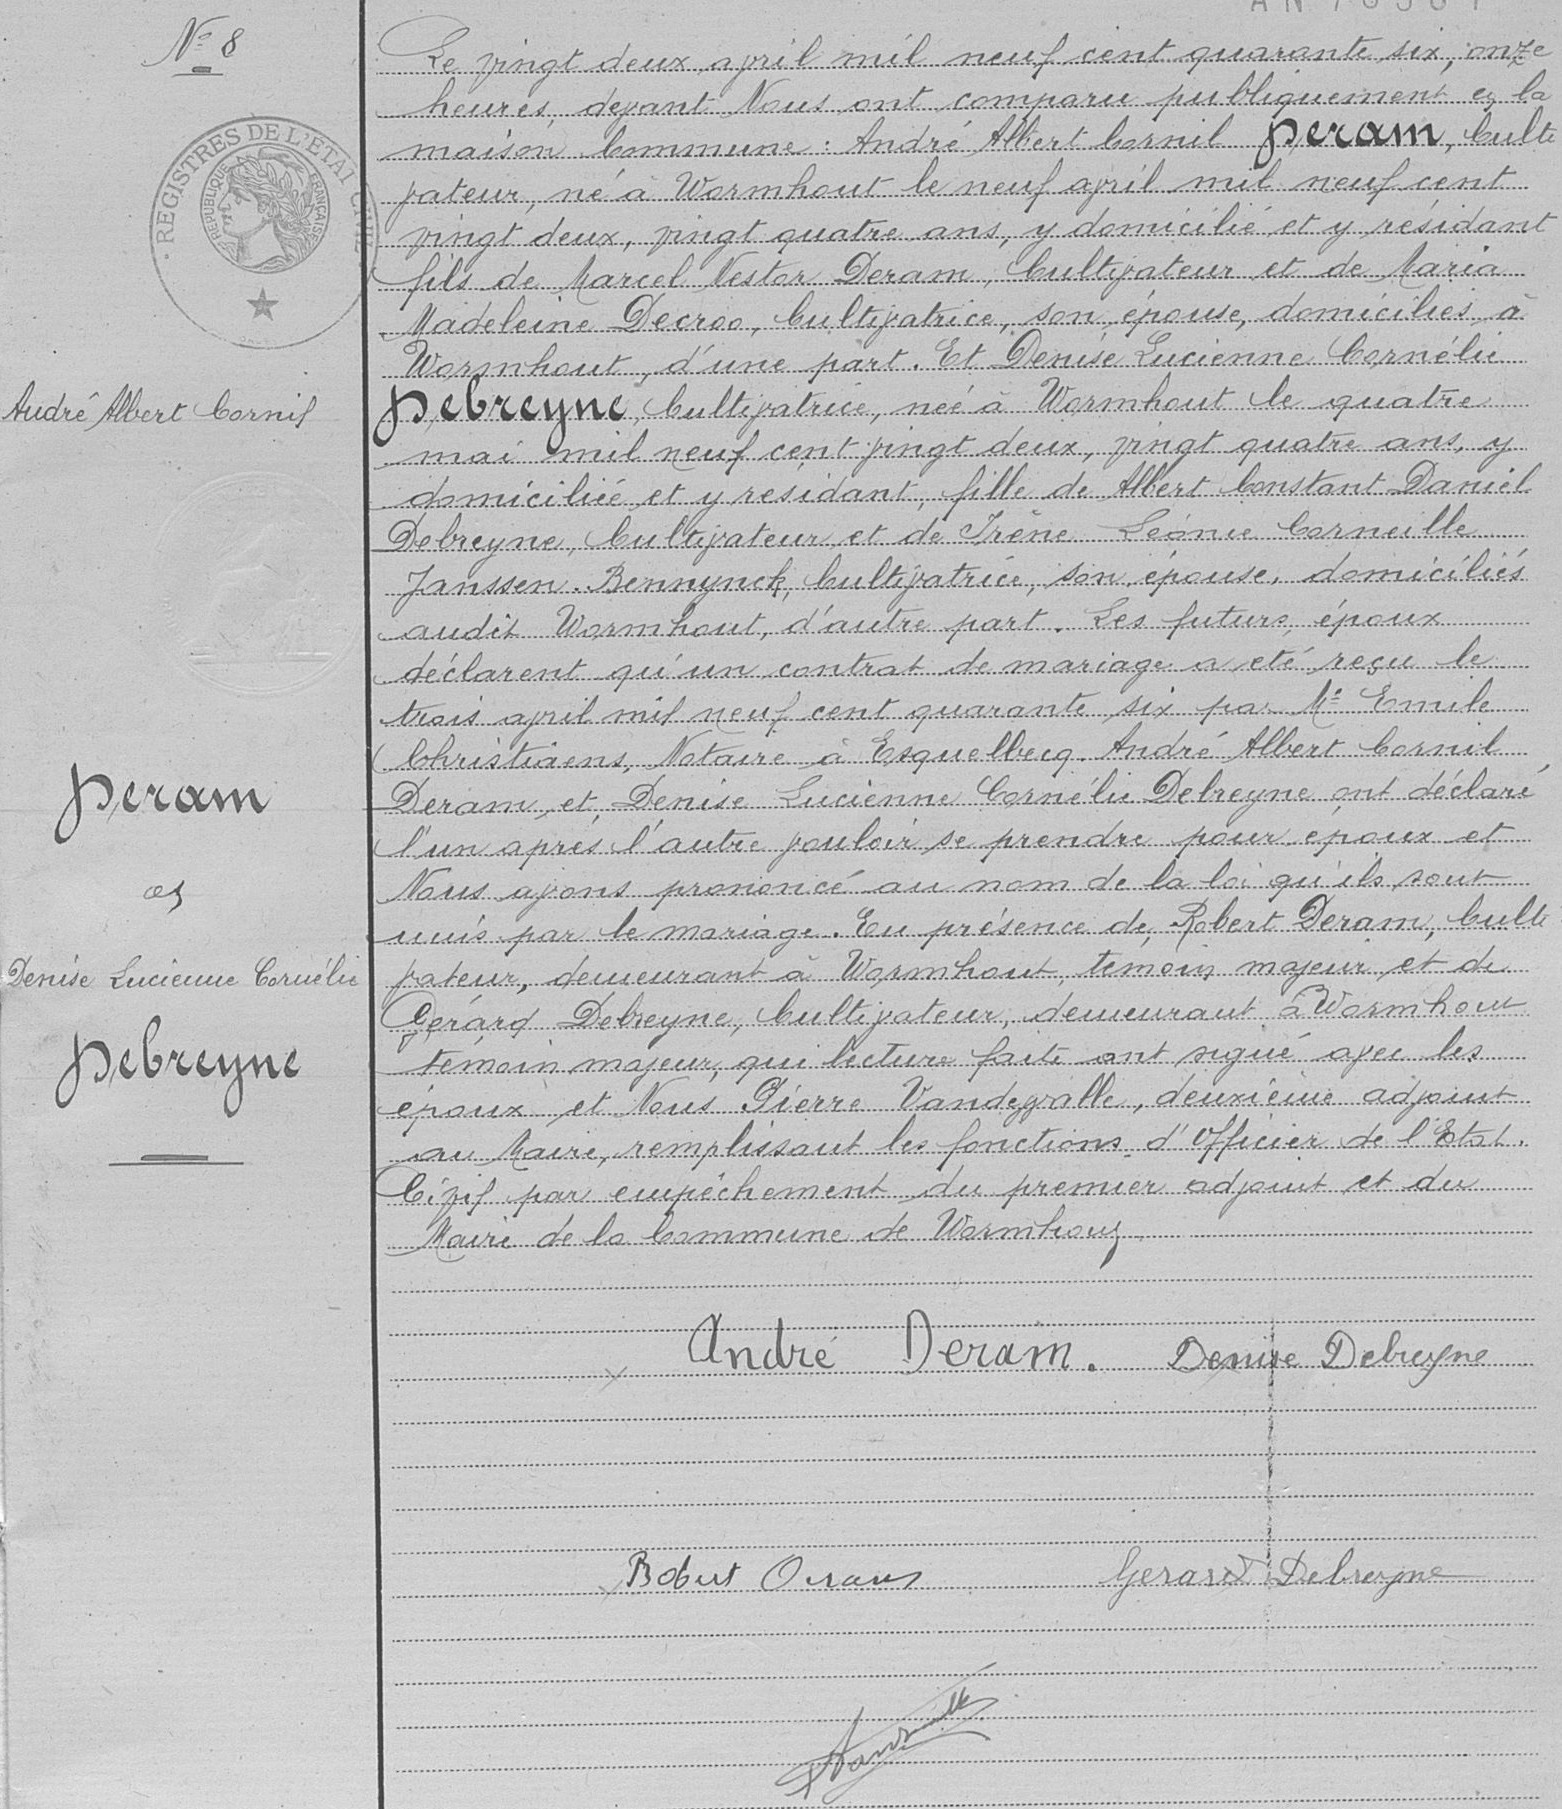 Nº 8
REGISTRES DE L'ETAT CIVIL
REPUBLIQUE FRANÇAISE
André Albert Cornil
Deram
et
Denise Lucienne Cornélie
Debreyne
Le vingt deux avril mil neuf cent quarante six, onze
heures, devant Nous ont comparu publiquement en la
maison Commune : André Albert Cornil Deram, Culti
vateur, né à Wormhout le neuf avril mil neuf cent
vingt deux, vingt quatre ans, y domicilié et y résidant
fils de Marcel Nestor Deram, Cultivateur et de Maria
Madeleine Decroo, Cultivatrice, son épouse, domiciliés à
Wormhout, d'une part. Et Denise Lucienne Cornélie
Debreyne, Cultivatrice, née à Wormhout le quatre
mai mil neuf cent vingt deux, vingt quatre ans, y
domiciliée et y residant, fille de Albert Constant Daniel
Debreyne, Cultivateur et de Irène Léonie Corneille
Janssen-Bennynck, Cultivatrice, son épouse, domiciliés
audit Wormhout, d'autre part. Les futurs époux
déclarent qu'un contrat de mariage a eté reçu le
trois avril mil neuf cent quarante six par Me Emile
Christiaens, Notaire à Esquelbecq. André Albert Cornil
Deram et Denise Lucienne Cornélie Debreyne ont déclaré
l'un après l'autre vouloir se prendre pour époux et
Nous avons prononcé au nom de la loi qu'ils sont
unis par le mariage. En présence de Robert Deram, Culti
vateur, demeurant à Wormhout, temoin majeur et de
Gérard Debreyne, Cultivateur, demeurant à Wormhout
temoin majeur, qui lecture faite ont signé avec les
époux et Nous Pierre Vandewalle, deuxième adjoint
au Maire, remplissant les fonctions d'Officier de l'Etat-
Civil par empêchement du premier adjoint et du
Maire de la Commune de Wormhout
André Deram. Denise Debreyne
Robert Deram Gerard Debreyne